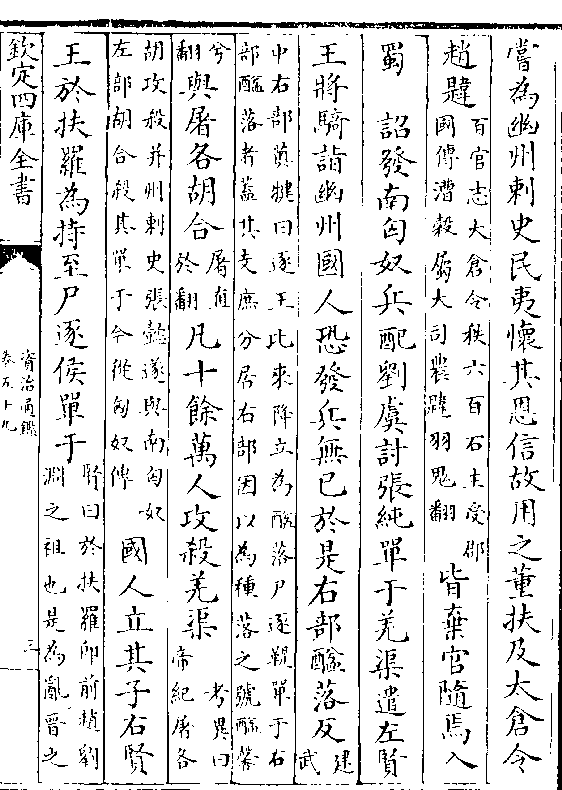 嘗為幽州刺史民夷懷其恩信故用之董扶及太倉令
趙韙
百官志大倉令秩六百石主受郡
國傳漕穀屬大司農韙羽鬼翻
皆棄官隨焉入
蜀 詔發南匈奴兵配劉虞討張純單于羌渠遣左賢
王將騎詣幽州國人恐發兵無已於是右部醯落反
建
武
中右部薁鞬曰逐王比來降立為醯落尸逐鞮單于右
部醯落者蓋其支庶分居右部因以為種落之號醯馨
兮
翻
與屠各胡合
屠直
於翻
凡十餘萬人攻殺羌渠
考異曰
帝紀屠各
胡攻殺并州刺史張懿遂與南匈奴
左部胡合殺其單于今從匈奴傳
國人立其子右賢
王於扶羅為持至尸逐侯單于
賢曰於扶羅即前趙劉
淵之祖也是為亂晉之
欽定四庫全書
資治通鑑
卷五十九
三